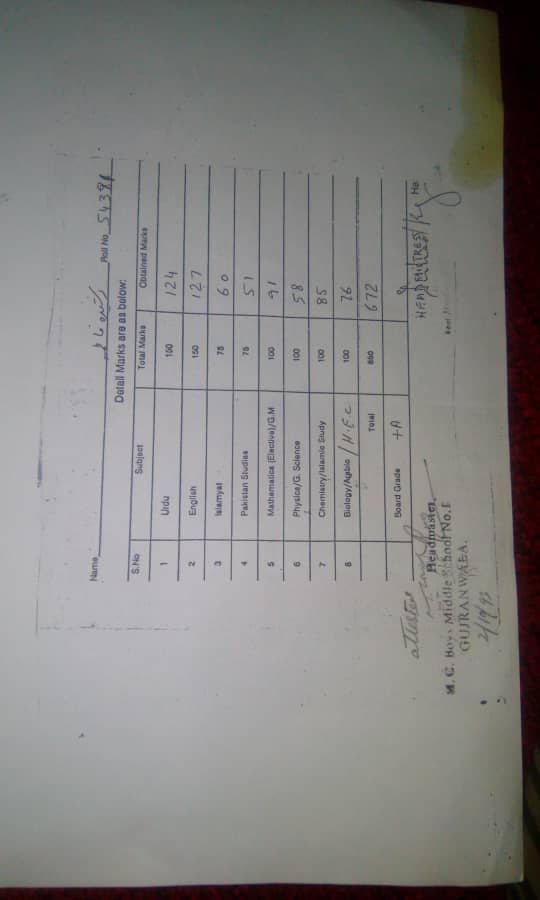 Name Roll No 54391
Detail Marks are as below:
S.No Subject Total Marks Obtained Marks
1 Urdu 150 124
2 English 150 127
3 Islamyat 75 60
4 Pakistan Studies 75 51
5 Mathematics (Elective)/G.M 100 91
6 Physics/G. Science 100 58
7 Chemistry/Islamic Study 100 85
8 Biology/Arabic / H.E.C 100 76
Total 850 672
Board Grade +A
attested
HEADMISTRESS
Headmaster,
M. C. Boys Middle School No.
GUJRANWALA.